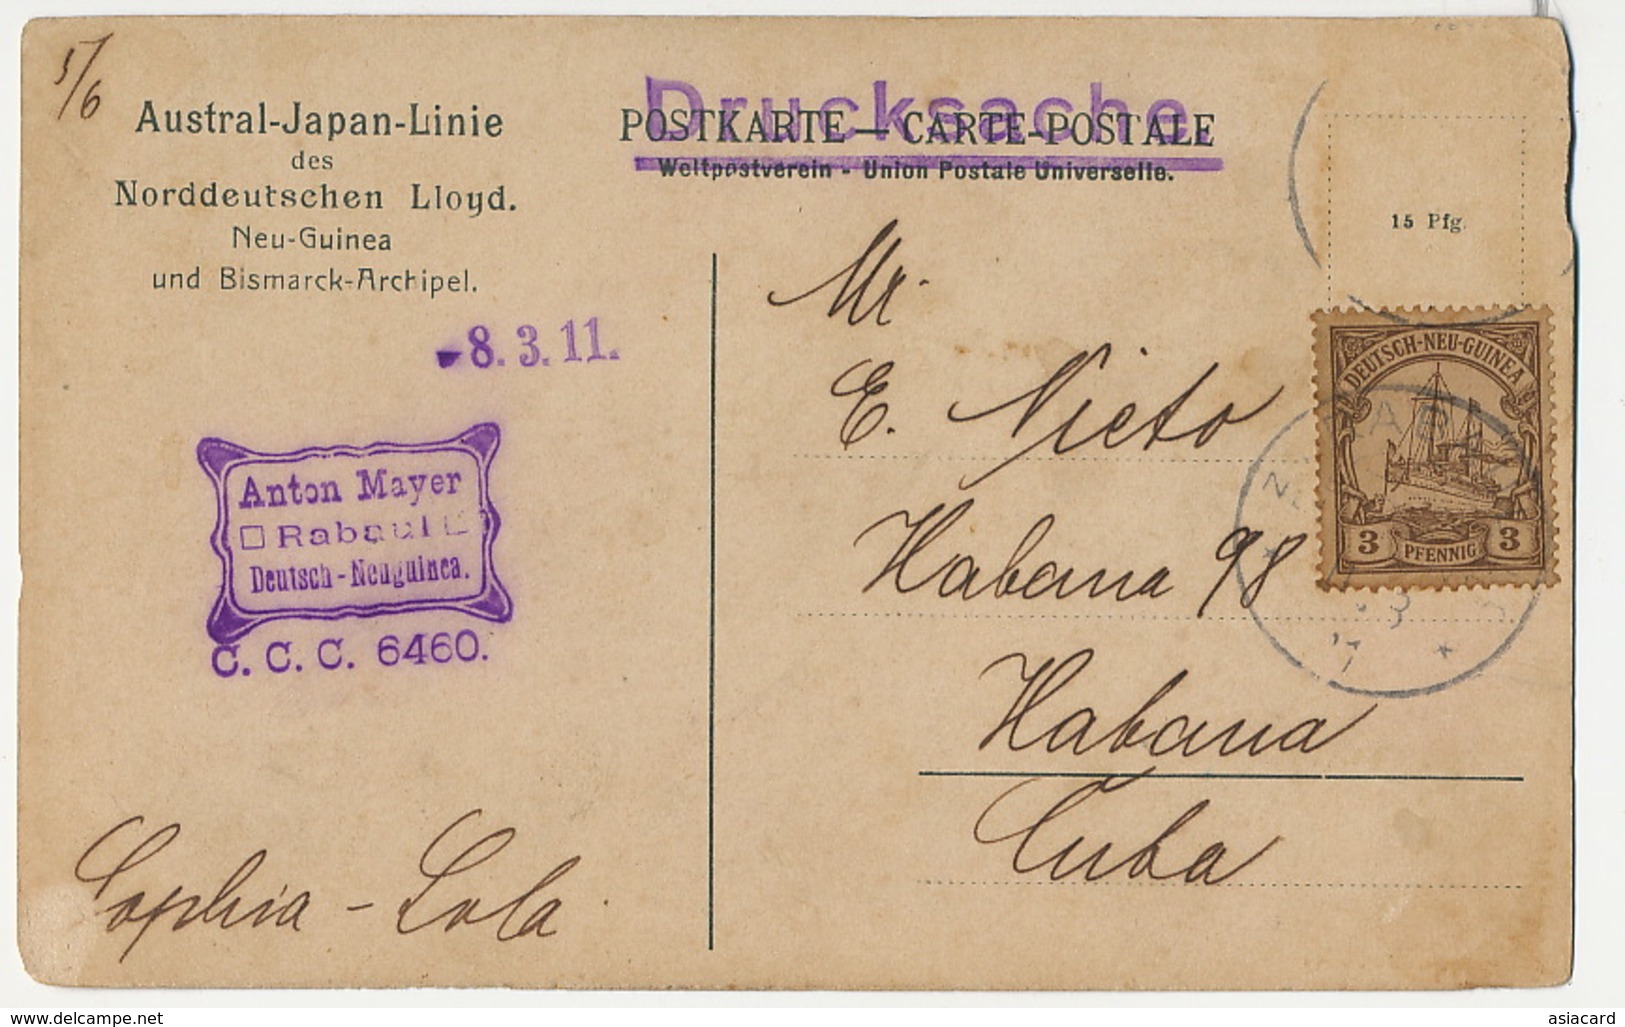 5/6
Austral-Japan-Linie
des
Norddeutschen Lloyd.
Neu-Guinea
und Bismarck-Archipel.
Drucksache.
POSTKARTE — CARTE-POSTALE
Weltpostverein - Union Postale Universelle.
15 Pfg.
-8. 3. 11.
Anton Mayer
Rabaul
Deutsch-Neuguinea.
C. C. C. 6460.
Mr.
E. Nieto
Habana 98
Habana
Cuba
DEUTSCH-NEU-GUINEA
3 PFENNIG 3
Sophia - Lola.
www.delcampe.net
asiacard